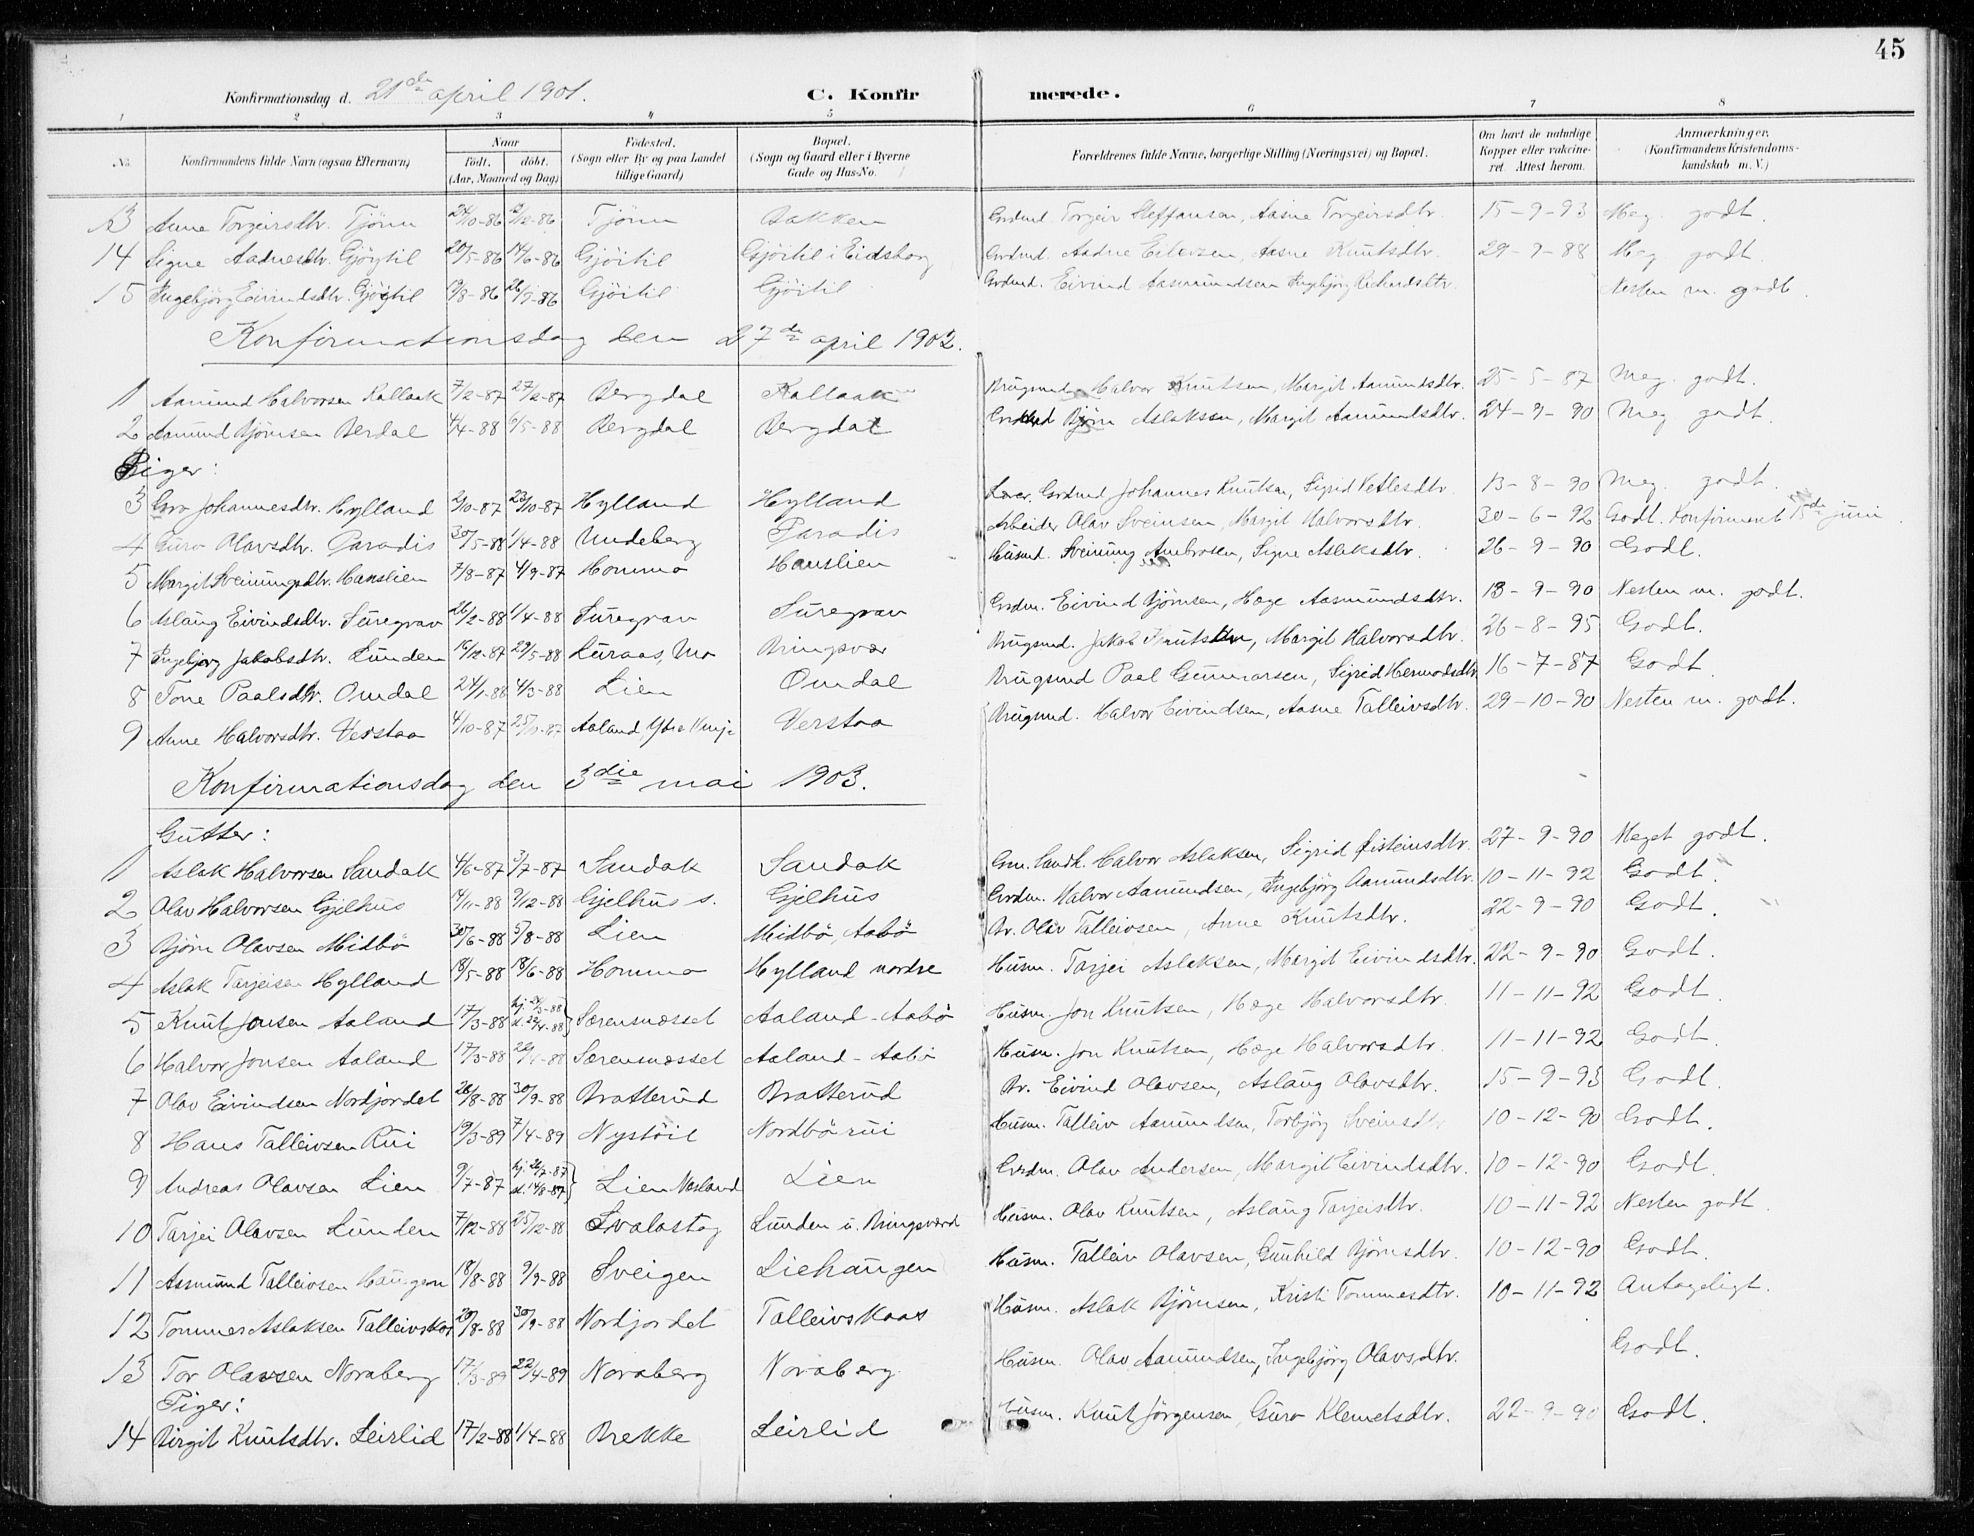 45
Konfirmationsdag d. 21de april 1901. C. Konfirmerede.
1 2 3 4 5 6 7 8
No. Konfirmandens fulde Navn (ogsaa Efternavn) Naar født, døbt. (Aar, Maaned og Dag) Fødested. (Sogn eller By og paa Landet tillige Gaard) Bopæl. (Sogn og Gaard eller i Byerne Gade og Hus-No. Forældrenes fulde Navne, borgerlige Stilling (Næringsvei) og Bopæl. Om havt de naturlige Kopper eller vakcineret. Attest herom. Anmærkninger. (Konfirmandens Kristendomskundskab m. V.)
13 Anne Torgeirsdtr. Tjönn 24/10-86 /12-86 Tjönn Bakken Grdmd. Torgeir Steffansen, Aasne Torgeirsdtr. 15-9-93 Meg. godt.
14 Signe Aadnesdtr. Gjöitil 20/5-86 14/6-86 Gjöitil Gjöitil i Eidsborg Grdmd. Aadne Eilevsen, Aasne Knutsdtr. 29-9-88 Meg godt.
15 Ingebjörg Eivindsdtr. Gjöitil 19/8-86 26/9-86 Gjöitil Gjöitil Grdmd. Eivind Aasmundsen Ingebjörg Rikardsdtr. Nesten m. godt.
Konfirmationsdag den 27de april 1902.
1 Aamund Halvorsen Kallaak 7/2-87 27/2-87 Bergdal Kallaak Brugsmd. Halvor Knutsen, Margit Aamundsdtr. 25-5-87 Meg. godt.
2 Aamund Björnsen Berdal 4/4-88 6/5-88 Bergdal Bergdal Grdmd Björn Aslaksen, Margit Aamundsdtr. 24-9-90 Meg godt.
Piger:
3 Gro Johannesdtr. Hylland 2/10-87 23/10-87 Hylland Hylland Grdmd Johannes Knutsen, Sigrid Vetlesdtr. 13-8-90 Meg. godt.
4 Guro Olavsdtr. Paradis 30/5-88 1/4-88 Undeberg Paradis Arbeider Olav Sveinsen, Margit Halvorsdtr. 30-6-92 Godt. Konfirment 15de juni
5 Margit Sveinungsdtr. Hanslien 7/8-87 4/9-87 Hommo Hanslien Husmd. Sveinung Ambrosen, Signe Aslaksdtr. 26-9-90 Godt.
6 Aslaug Eivindsdtr. Suregrav 26/2-88 1/4-88 Suregrav Suregrav Grdm. Eivind Björnsen, Hæge Aasmundsdtr. 13-9-90 Nesten m. godt.
7 Ingebjorg Jakobsdtr. Lunden 16/12-87 29/5-88 Luraas, Mo Bringsvær Brugsmd. Jakob Knutsen, Margit Halvorsdtr. 26-8-95 Godt.
8 Tone Paalsdtr. Omdal 24/1-88 4/3-88 Lien Omdal Brugsmd Paal Gunnarsen, Sigrid Hermodsdtr. 16-7-87 Godt.
9 Anne Halvorsdtr. Verstaa 4/10-87 25/-87 Aaland, Verstaa Brugsmd. Halvor Eivindsen, Aasne Talleivsdtr. 29-10-90 Nesten m. godt.
Konfirmationsdag den 3die mai 1903.
Gutter:
1 Aslak Halvorsen Sandok 4/6-87 3/7-87 Sandok Sandok Halvor Aslaksen, Sigrid Øisteinsdtr. 27-9-90 Meget godt.
2 Olav Halvorsen Gjelhus 14/11-88 9/12-88 Gjelhus s. Gjelhus Grdm. Halvor Aamundsen, Ingebjörg Aamundsdtr. 10-11-92 Godt.
3 Björn Olavsen Midbö 30/6-88 5/8-88 Lien Midbö, Aabö Br. Olav Talleivsen, Anne Knutsdtr. 22-9-90 Godt.
4 Aslak Tarjeisen Hylland 18/5-88 18/6-88 Hommo Hylland nordre Husm. Tarjei Aslaksen, Margit Eivindsdtr. 22-9-90 Godt.
5 Knut Jonsen Aaland 17/3-88 hj. 24/3-88 d. 22/4-88 Sørensnæsset Aaland-Aabö Husm. Jon Knutsen, Hæge Halvorsdtr. 11-11-92 Godt.
6 Halvor Jonsen Aaland 17/3-88 Sørensnæsset Aaland-Aabö Husm. Jon Knutsen, Hæge Halvorsdtr. 11-11-92 Godt.
7 Olav Eivindsen Nordjordet 26/8-88 30/9-88 Bratterud Bratterud Br. Eivind Olavsen, Aslaug Olavsdtr. 15-9-93 Godt.
8 Hans Talleivsen Rui 19/3-89 7/4-89 Nystöil Nordbö rui Husm. Talleiv Aamundsen, Torbjörg Sveinsdtr 10-12-90 Godt.
9 Andreas Olavsen Lien 9/7-87 hj. 24/7-87 d. 14/8-87 Lien Nesland Lien Grdm. Olav Andersen, Margit Eivindsdtr. 10-12-90 Godt.
10 Tarjei Olavsen Lunden 7/12-88 25/12-88 Svalastog Lunden u. Bringsværd Husm. Olav Knutsen, Aslaug Tarjeisdtr. 10-11-92 Nesten godt
11 Aasmund Talleivsen Haugen 18/8-88 9/9-88 Sveigen Liehaugen Husm. Talleiv Olavsen, Gunhild Björnsdtr. 10-12-90 Godt.
12 Tommes Aslaksen Talleivskaas 20/8-88 30/9-88 Nordjordet Talleivskaas Husm. Aslak Björnsen, Kristi Tommesdtr. 10-11-92 Antageligt.
13 Tor Olavsen Noraberg 17/3-89 22/4-89 Noraberg Noraberg Husm. Olav Aamundsen, Ingebjörg Olavsdtr. Godt.
Piger:
14 Birgit Knutsdtr. Leirlid 17/2-88 1/4-88 Brekke Leirlid Husm. Knut Jörgensen, Guro Klemetsdtr. 22-9-90 Godt.